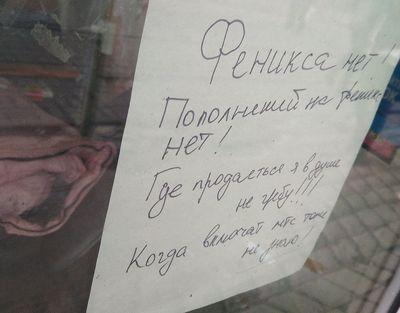 Феникса нет!
Пополнений на феникс
нет!
Где продаеться я в душе
не гребу!!!
Когда включат мтс тоже
не знаю!